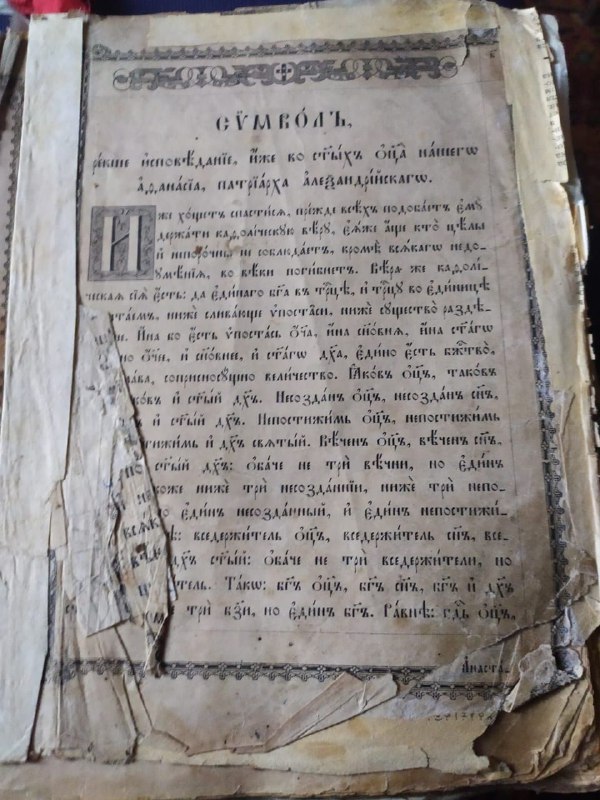 СѴМВО́ЛЪ,
ре́кше и҆сповѣ́данїе, и҆́же во ст҃ы́хъ ѻ҆ц҃а̀ на́шегѡ
а҆ѳана́сїа, патрїа́рха а҆леѯандрі́йскагѡ.
И҆́же хо́щетъ спасти́сѧ, пре́жде всѣ́хъ подоба́етъ є҆мꙋ̀
держа́ти каѳолі́ческꙋю вѣ́рꙋ, є҆ѧ́же а҆́ще кто̀ цѣ́лы
и҆ непоро́чны не соблюда́етъ, кромѣ̀ всѧ́кагѡ недо-
ꙋмѣ́нїѧ, во вѣ́ки поги́бнетъ. Вѣ́ра же каѳолі́-
ческаѧ сїѧ̀ є҆́сть: да є҆ди́наго бг҃а въ трⷪ҇цѣ, и҆ трⷪ҇цꙋ во є҆ди́ницѣ
таемъ, нижѐ слива́юще ѵ҆поста̑си, нижѐ сꙋщество̀ раздѣ-
И҆́на бо є҆́сть ѵ҆поста́сь ѻ҆́ч҃а, и҆́на сн҃о́внѧ, и҆́на ст҃а́гѡ
но ѻ҆́ч҃ее, и҆ сн҃о́внее, и҆ ст҃а́гѡ дх҃а, є҆ди́но є҆́сть бж҃ество̀,
ава, соприсносꙋ́щно вели́чество. Ꙗ҆ко́въ ѻ҆ц҃ъ, тако́въ
ко́въ и҆ ст҃ы́й дх҃ъ. Несозда́нъ ѻ҆ц҃ъ, несозда́нъ сн҃ъ,
и҆ ст҃ы́й дх҃ъ. Непостижи́мь ѻ҆ц҃ъ, непостижи́мь
тижи́мь и҆ дх҃ъ свѧты́й. Вѣ́ченъ ѻ҆ц҃ъ, вѣ́ченъ сн҃ъ,
ст҃ы́й дх҃ъ: ѻ҆ба́че не трѝ вѣ́чни, но є҆ди́нъ
коже нижѐ трѝ несозда́ннїи, нижѐ трѝ непо-
но є҆ди́нъ несозда́нный, и҆ є҆ди́нъ непостижи́-
вседержи́тель ѻ҆ц҃ъ, вседержи́тель сн҃ъ, все-
дх҃ъ ст҃ы́й: ѻ҆ба́че не трѝ вседержи́тели, но
тель. Та́кѡ: бг҃ъ ѻ҆ц҃ъ, бг҃ъ сн҃ъ, бг҃ъ и҆ дх҃ъ
трѝ бз҃и, но є҆ди́нъ бг҃ъ. Ра́внѣ: гдⷭ҇ь ѻ҆ц҃ъ,
А҆наста-